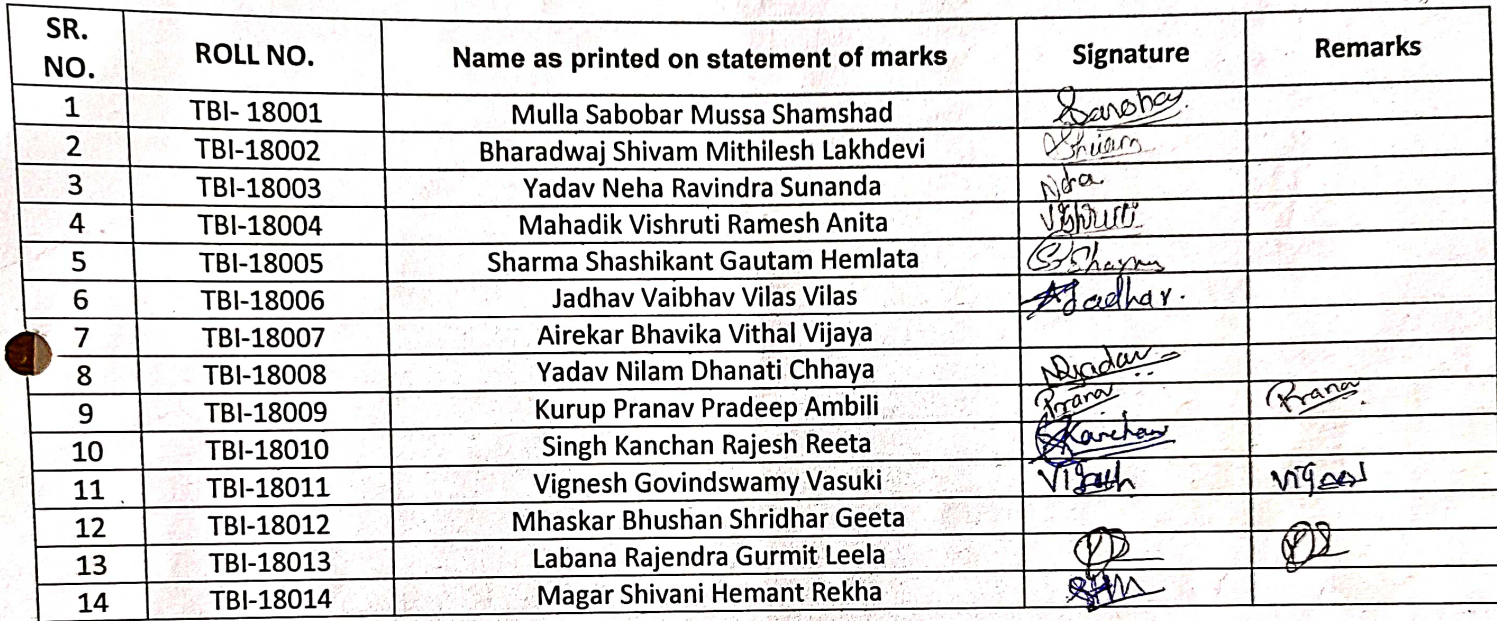 SR. NO. ROLL NO. Name as printed on statement of marks Signature Remarks
1 TBI- 18001 Mulla Sabobar Mussa Shamshad
2 TBI-18002 Bharadwaj Shivam Mithilesh Lakhdevi Shivam
3 TBI-18003 Yadav Neha Ravindra Sunanda
4 TBI-18004 Mahadik Vishruti Ramesh Anita Vishruti
5 TBI-18005 Sharma Shashikant Gautam Hemlata
6 TBI-18006 Jadhav Vaibhav Vilas Vilas Jadhav.
7 TBI-18007 Airekar Bhavika Vithal Vijaya
8 TBI-18008 Yadav Nilam Dhanati Chhaya NDyadav
9 TBI-18009 Kurup Pranav Pradeep Ambili Prana Prana
10 TBI-18010 Singh Kanchan Rajesh Reeta Kanchan
11 TBI-18011 Vignesh Govindswamy Vasuki
12 TBI-18012 Mhaskar Bhushan Shridhar Geeta
13 TBI-18013 Labana Rajendra Gurmit Leela
14 TBI-18014 Magar Shivani Hemant Rekha